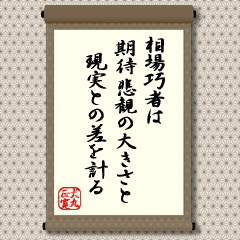 相場巧者は
期待悲観の大きさと
現実との差を計る
大丸
正寛